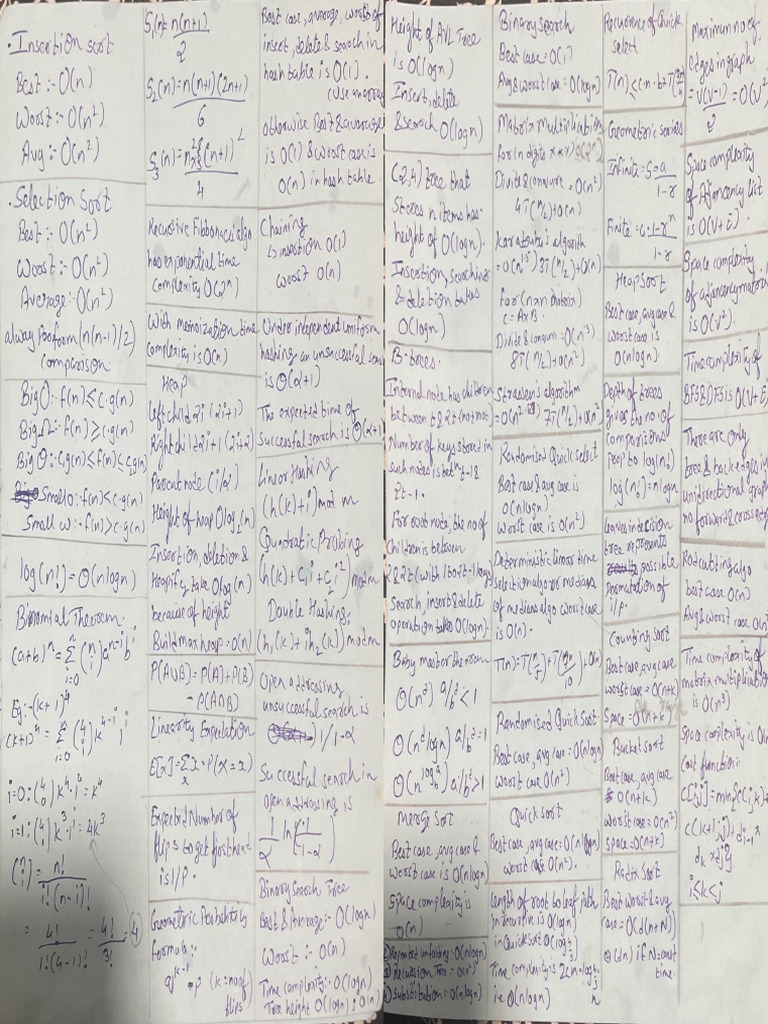 . Insertion sort
Best :- O(n)
Worst :- O(n²)
Avg :- O(n²)
. Selection Sort
Best :- O(n²)
Worst :- O(n²)
Average :- O(n²)
always perform (n(n-1)/2)
comparison
Big O :- f(n) ≤ c·g(n)
Big Ω :- f(n) ≥ c·g(n)
Big Θ :- c₁g(n) ≤ f(n) ≤ c₂g(n)
Small o :- f(n) < c·g(n)
Small ω :- f(n) > c·g(n)
log(n!) = Θ(nlogn)
Binomial Theorem.
(a+b)ⁿ = Σ (n i) aⁿ⁻ⁱ bⁱ
i=0
Eg :- (k+1)⁴
(k+1)⁴ = Σ (4 i) k⁴⁻ⁱ 1ⁱ
i=0
i=0 : (4 0) k⁴·1⁰ = k⁴
i=1 : (4 1) k³·1¹ = 4k³
(n i) = n! / i!(n-i)!
= 4! / 1!(4-1)! = 4! / 3! = 4
S₁(n) = n(n+1) / 2
S₂(n) = n(n+1)(2n+1) / 6
S₃(n) = n²{(n+1)² / 4
Recursive Fibbonacci algo
has exponential time
complexity O(2ⁿ)
With memoization time
complexity is O(n)
Heap
Left child 2i (2i+1)
Right child 2i+1 (2i+2)
Parent note (i/2)
Height of heap O log₂(n)
Insertion, deletion &
Heapify take O log(n)
because of height
Build max heap = O(n)
P(A∪B) = P(A)+P(B)
- P(A∩B)
Linearity Expectation
E[x] = Σ x·P(x=x)
x
Expected Number of
flips to get first head
is 1/P.
Geometric Probability
formula :-
qᵏ⁻¹·p (k=no of
flips
Best case, average, worst of
insert, delete & search in
hash table is O(1).
(Use an array
otherwise Best & average
is O(1) & worst case is
O(n) in hash table.
Chaining
↳ insertion O(1)
worst O(n)
Under independent uniform
hashing an unsuccessful search
is Θ(α+1)
The expected time of
successful search is Θ(α+1)
Linear Hashing
(h(k)+i) mod m
Quadratic Probing
(h(k)+c₁i+c₂i²) mod m
Double Hashing
(h₁(k)+ih₂(k)) mod m
Open addressing
unsuccessful search is
1/1-α
Successful search in
open addressing is
1/α ln(1/1-α)
Binary Search Tree
Best & Average :- O(logn)
Worst :- O(n)
Time complexity :- O(logn)
Tree height O(logn) : O(n)
Height of AVL Tree
is O(logn)
Insert, delete
& search O(logn)
(2,4) tree that
stores n items has
height of O(logn).
Insertion, searching
& deletion takes
O(logn)
B-trees.
Internal note has children
between t & 2t (not root)
Number of keys stored in
such nodes is betⁿ t-1 &
2t-1.
For root note, the no of
children is between
2 & 2t (with 1 to 2t-1 keys)
Search, insert & delete
operation takes O(logn).
Baby master theorem
Θ(nᵈ) a/bᵈ < 1
Θ(nᵈ logn) a/bᵈ = 1
Θ(n^log_b a) a/bᵈ > 1
Merge Sort
Best case, avg case &
worst case is O(nlogn)
Space complexity is
O(n)
① Repeated unfolding :- O(nlogn)
② Recursion Tree = O(n²)
③ Substitution :- O(nlogn)
Binary Search
Best case = O(1)
Avg & worst case = O(logn)
Matrix Multiplication
Divide & conquer = O(n²)
4T(n/2)+O(n)
Karatsuba's algorith
= O(n^1.5) 3T(n/2)+O(n)
For (n×n matrix)
C = A×B
Divide & conquer = O(n³)
8T(n/2)+O(n²)
Strassen's algorithm
7T(n/2)+O(n²)
Randomised Quick select
Best case & avg case is
O(nlogn)
Worst case is O(n²)
Deterministic linear time
selection algo or medians
of medians algo worst case
is O(n).
T(n) = T(n/5)+T(7n/10)+O(n)
Randomised Quick Sort
Best case, avg case = O(nlogn)
worst case O(n²)
Quick Sort
Best case, avg case = O(nlogn)
worst case O(n²).
Length of root to leaf path
in recursive is O(logn)
in Quick Sort
Time complexity is
i.e O(nlogn)
Recurrence of Quick
select
Geometric series
Infinite = S = a / 1-r
Finite = 1-rⁿ / 1-r
Heap Sort
Best case, avg case &
worst case is
O(nlogn)
Depth of trees
gives the no. of
comparisons
prop to log(n!)
log(n!) = nlogn
Leaves in decision
tree represents
possible
permutation of
i/p.
Counting Sort
Best case, avg case
worst case = O(n+k)
Space = O(n+k)
Bucket Sort
Best case, avg case
is O(n+k)
worst case = O(n²)
space = O(n+k)
Radix Sort
Best worst & avg
case = O(d(n+N))
Θ(dn) if N=const
time.
Maximum no of
edges in graph
= V(V-1) / 2 = O(V²)
Space complexity
of Adjancency list
is O(V+E).
Space complexity
of adjancency matrix
is O(V²).
Time complexity of
BFS & DFS is O(V+E)
There are only
tree & back edges in
unidirectional graph
no forward & cross edge
Rod cutting algo
best case O(n)
Avg & worst case O(n²)
Time complexity of
matrix multiplication
is O(n³)
Space complexity is
Cost function :-
i≤k<j